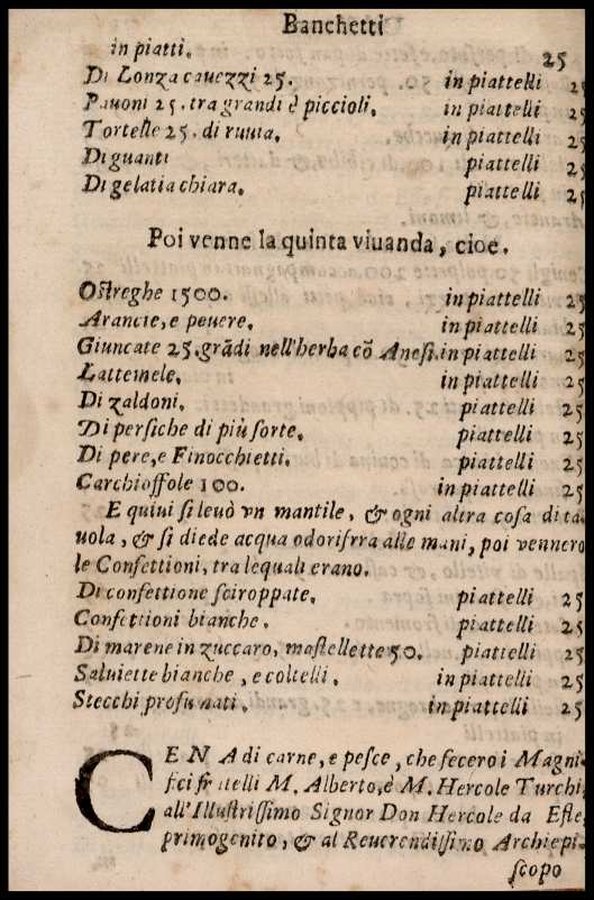 Banchetti
in piatti. 25
Di Lonza cauezzi 25. in piattelli 25
Pauoni 25. tra grandi è piccioli. in piattelli 25
Tortelle 25. di ruuia. in piattelli 25
Di guanti piattelli 25
Di gelatia chiara. piattelli 25
Poi venne la quinta viuanda, cioe.
Ostreghe 1500. in piattelli 25
Arancie, e peuere. in piattelli 25
Giuncate 25. grãdi nell'herba cõ Anesi. in piattelli 25
Lattemele. in piattelli 25
Di zaldoni. piattelli 25
Di persiche di più sorte. piattelli 25
Di pere, e Finocchietti. piattelli 25
Carchioffole 100. in piattelli 25
E quiui si leuò vn mantile, & ogni altra cosa di ta-
uola, & si diede acqua odorifrra alle mani, poi vennero
le Confettioni, tra lequali erano.
Di confettione sciroppate. piattelli 25
Confettioni bianche. piattelli 25
Di marene in zuccaro, mastellette 50. piattelli 25
Saluiette bianche, e coltelli. in piattelli 25
Stecchi profumati. in piattelli 25
CENA di carne, e pesce, che fecero i Magni-
fici fratelli M. Alberto, è M. Hercole Turchi,
all'Illustrissimo Signor Don Hercole da Este,
primogenito, & al Reuerendissimo Archiepi-
scopo